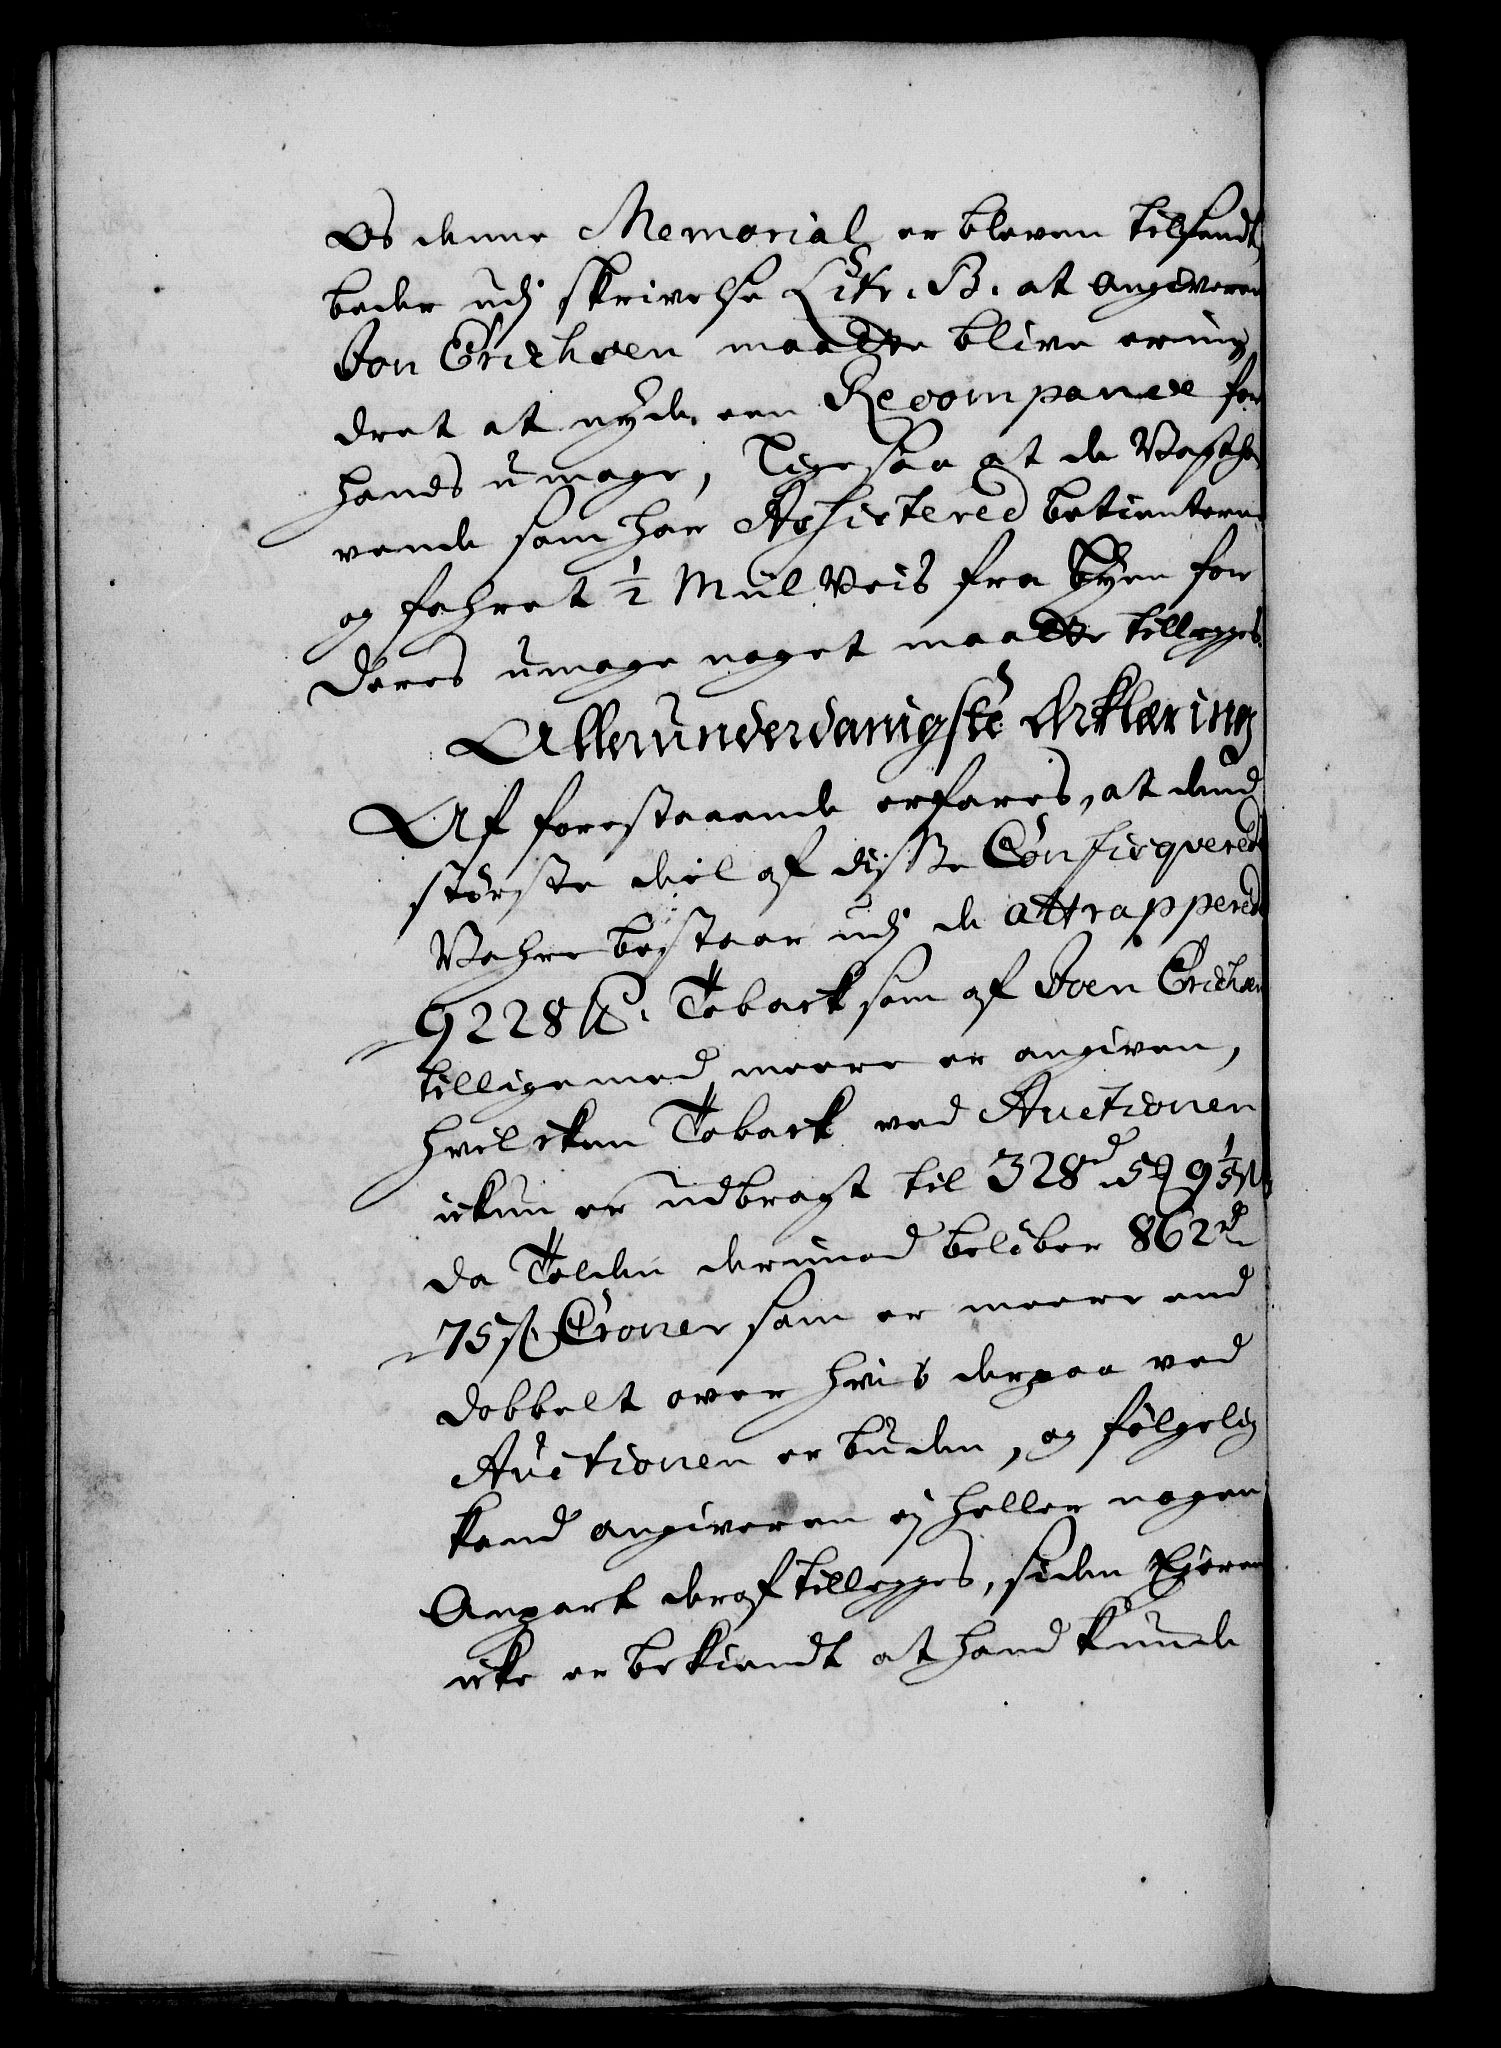 Os denne Memorial er bleven tilsendt,
beder udj skrivelse Litr. B. at Angiveren
Jon Erichsen maatte blive erin¬
dret at nyde een Recompance for
hands umage, Ligesaa at de Vagtha¬
vende som har Assistered betienterne
og fahret ½ Miil Veis fra Byen for
deres umage noget maatte tillegges.
Allerunderdanigste Erklæring
Af forestaaende erfares, at dend
störste deel af disse Confisqverede
Vahre bestaar udj de attrapperede
9228 ℔. Toback som af Joen Erichsen
tilligemed meere er angiven,
hvilcken Toback ved Auctionen
ickun er udbragt til 328 rd 5 ℳ 9⅕ ß
da Tolden derimod belöber 862 rd
75 ß Croner som er meere end
dobbelt over hvis derpaa ved
Auctionen er buden, og fölgelig
kand angiveren ej heller nogen
Anpart deraf tillegges, siden Ejeren
icke er bekiendt at hand kunde